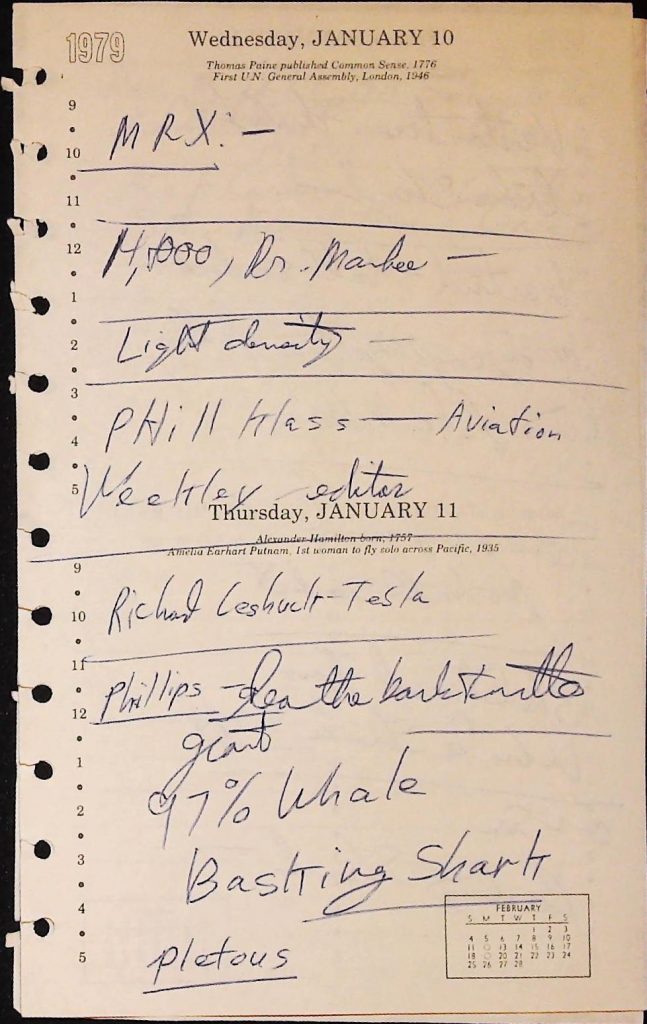 1979
Wednesday, JANUARY 10
Thomas Paine published Common Sense, 1776
First U.N. General Assembly, London, 1946
9
MRX: —
10
11
12
14,000, Dr. —
1
Light density —
2
3
PHill Klass — Aviation
4
5
Weekley editor
Thursday, JANUARY 11
Alexander Hamilton born, 1757
Amelia Earhart Putnam, 1st woman to fly solo across Pacific, 1935
9
Richard - Tesla
10
11
Phillips -
12
giant
1
97% Whale
2
3
Basking Shark
4
FEBRUARY
S M T W T F S
1 2 3
4 5 6 7 8 9 10
11 13 14 15 16 17
18 20 21 22 23 24
25 26 27 28
5
pletous